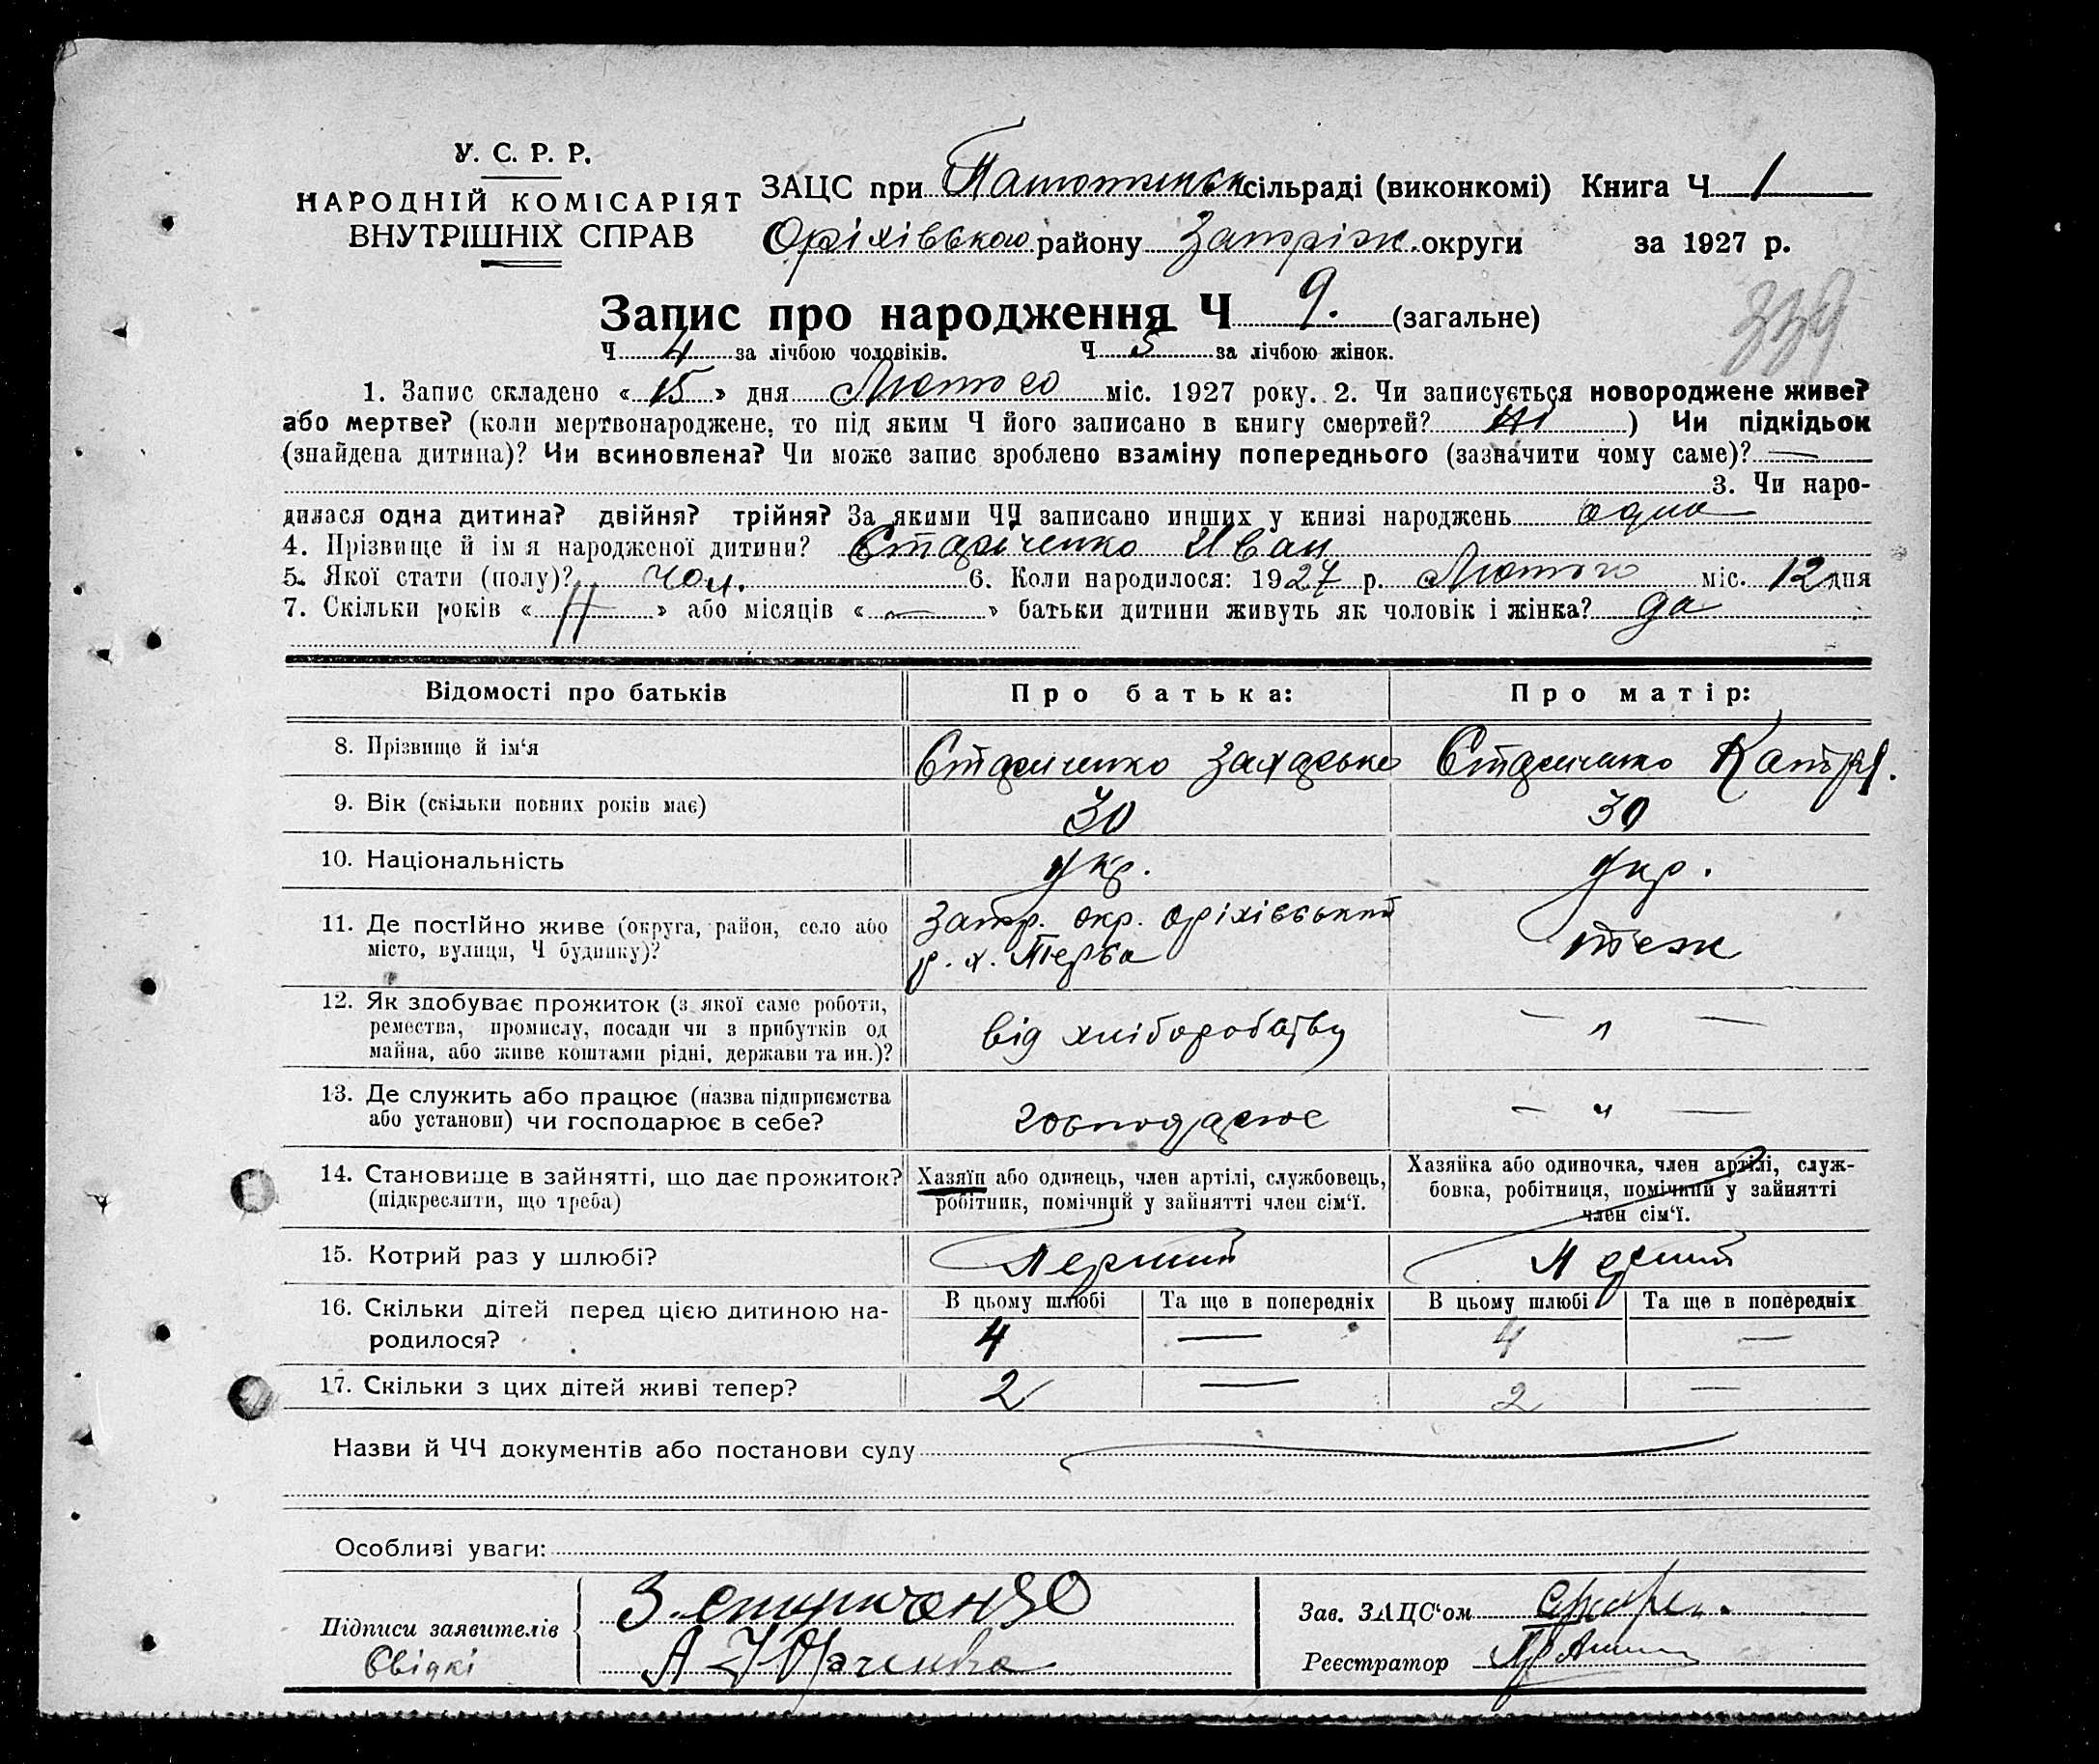 У. С. Р. Р.
НАРОДНІЙ КОМІСАРІЯТ
ВНУТРІШНІХ СПРАВ
ЗАЦС при сільраді (виконкомі) Книга Ч 1
Оріхівського району Запоріж. округи за 1927 р.
339
Запис про народження Ч 9. (загальне)
Ч 4 за лічбою чоловіків. Ч 5 за лічбою жінок.
1. Запис складено « 15 » дня Лютого міс. 1927 року. 2. Чи записується новороджене живе?
або мертве? (коли мертвонароджене, то під яким Ч його записано в книгу смертей? ) Чи підкідьок
(знайдена дитина)? Чи всиновлена? Чи може запис зроблено взаміну попереднього (зазначити чому саме)? —
3. Чи наро-
дилася одна дитина? двійня? трійня? За якими ЧЧ записано инших у книзі народжень одна
4. Прізвище й ім'я народженої дитини? Стариченко Иван
5. Якої стати (полу)? чол. 6. Коли народилося: 1927 р. Лютого міс. 12 дня
7. Скільки років « 11 » або місяців « — » батьки дитини живуть як чоловік і жінка? да
Відомості про батьків Про батька: Про матір:
8. Прізвище й ім'я Стариченко Захарько Стариченко Катря.
9. Вік (скільки повних років має) 30 30
10. Національність укр. укр.
11. Де постійно живе (округа, район, село або Запор. окр. Оріхівський
місто, вулиця, Ч будинку)? р. х. Верба теж
12. Як здобуває прожиток (з якої саме роботи,
ремества, промислу, посади чи з прибутків од від хліборобству — „ —
майна, або живе коштами рідні, держави та ин.)?
13. Де служить або працює (назва підприємства
або установи) чи господарює в себе? господарює — „ —
14. Становище в зайнятті, що дає прожиток? Хазяїн або одинець, член артілі, службовець, Хазяйка або одиночка, член артілі, служ-
(підкреслити, що треба) робітник, помічний у зайнятті член сім'ї. бовка, робітниця, помічний у зайнятті
член сім'ї.
15. Котрий раз у шлюбі? Перший Перший
16. Скільки дітей перед цією дитиною на- В цьому шлюбі Та ще в попередніх В цьому шлюбі Та ще в попередніх
родилося? 4 — 4 —
17. Скільки з цих дітей живі тепер? 2 — 2 —
Назви й ЧЧ документів або постанови суду
Особливі уваги:
Підписи заявителів З. Стариченко Зав. ЗАЦС'ом
Свідкі А Реєстратор